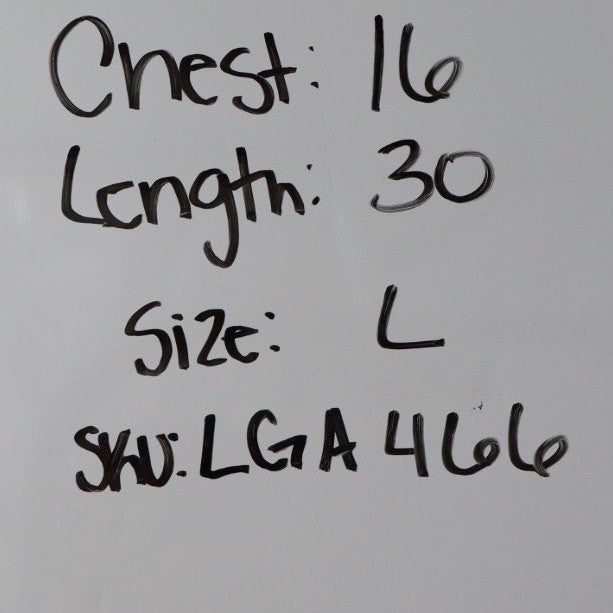 Chest: 16
Length: 30
Size: L
SKU: LGA466